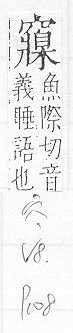 魚際切音
義睡語也
穴.
V8.
P108